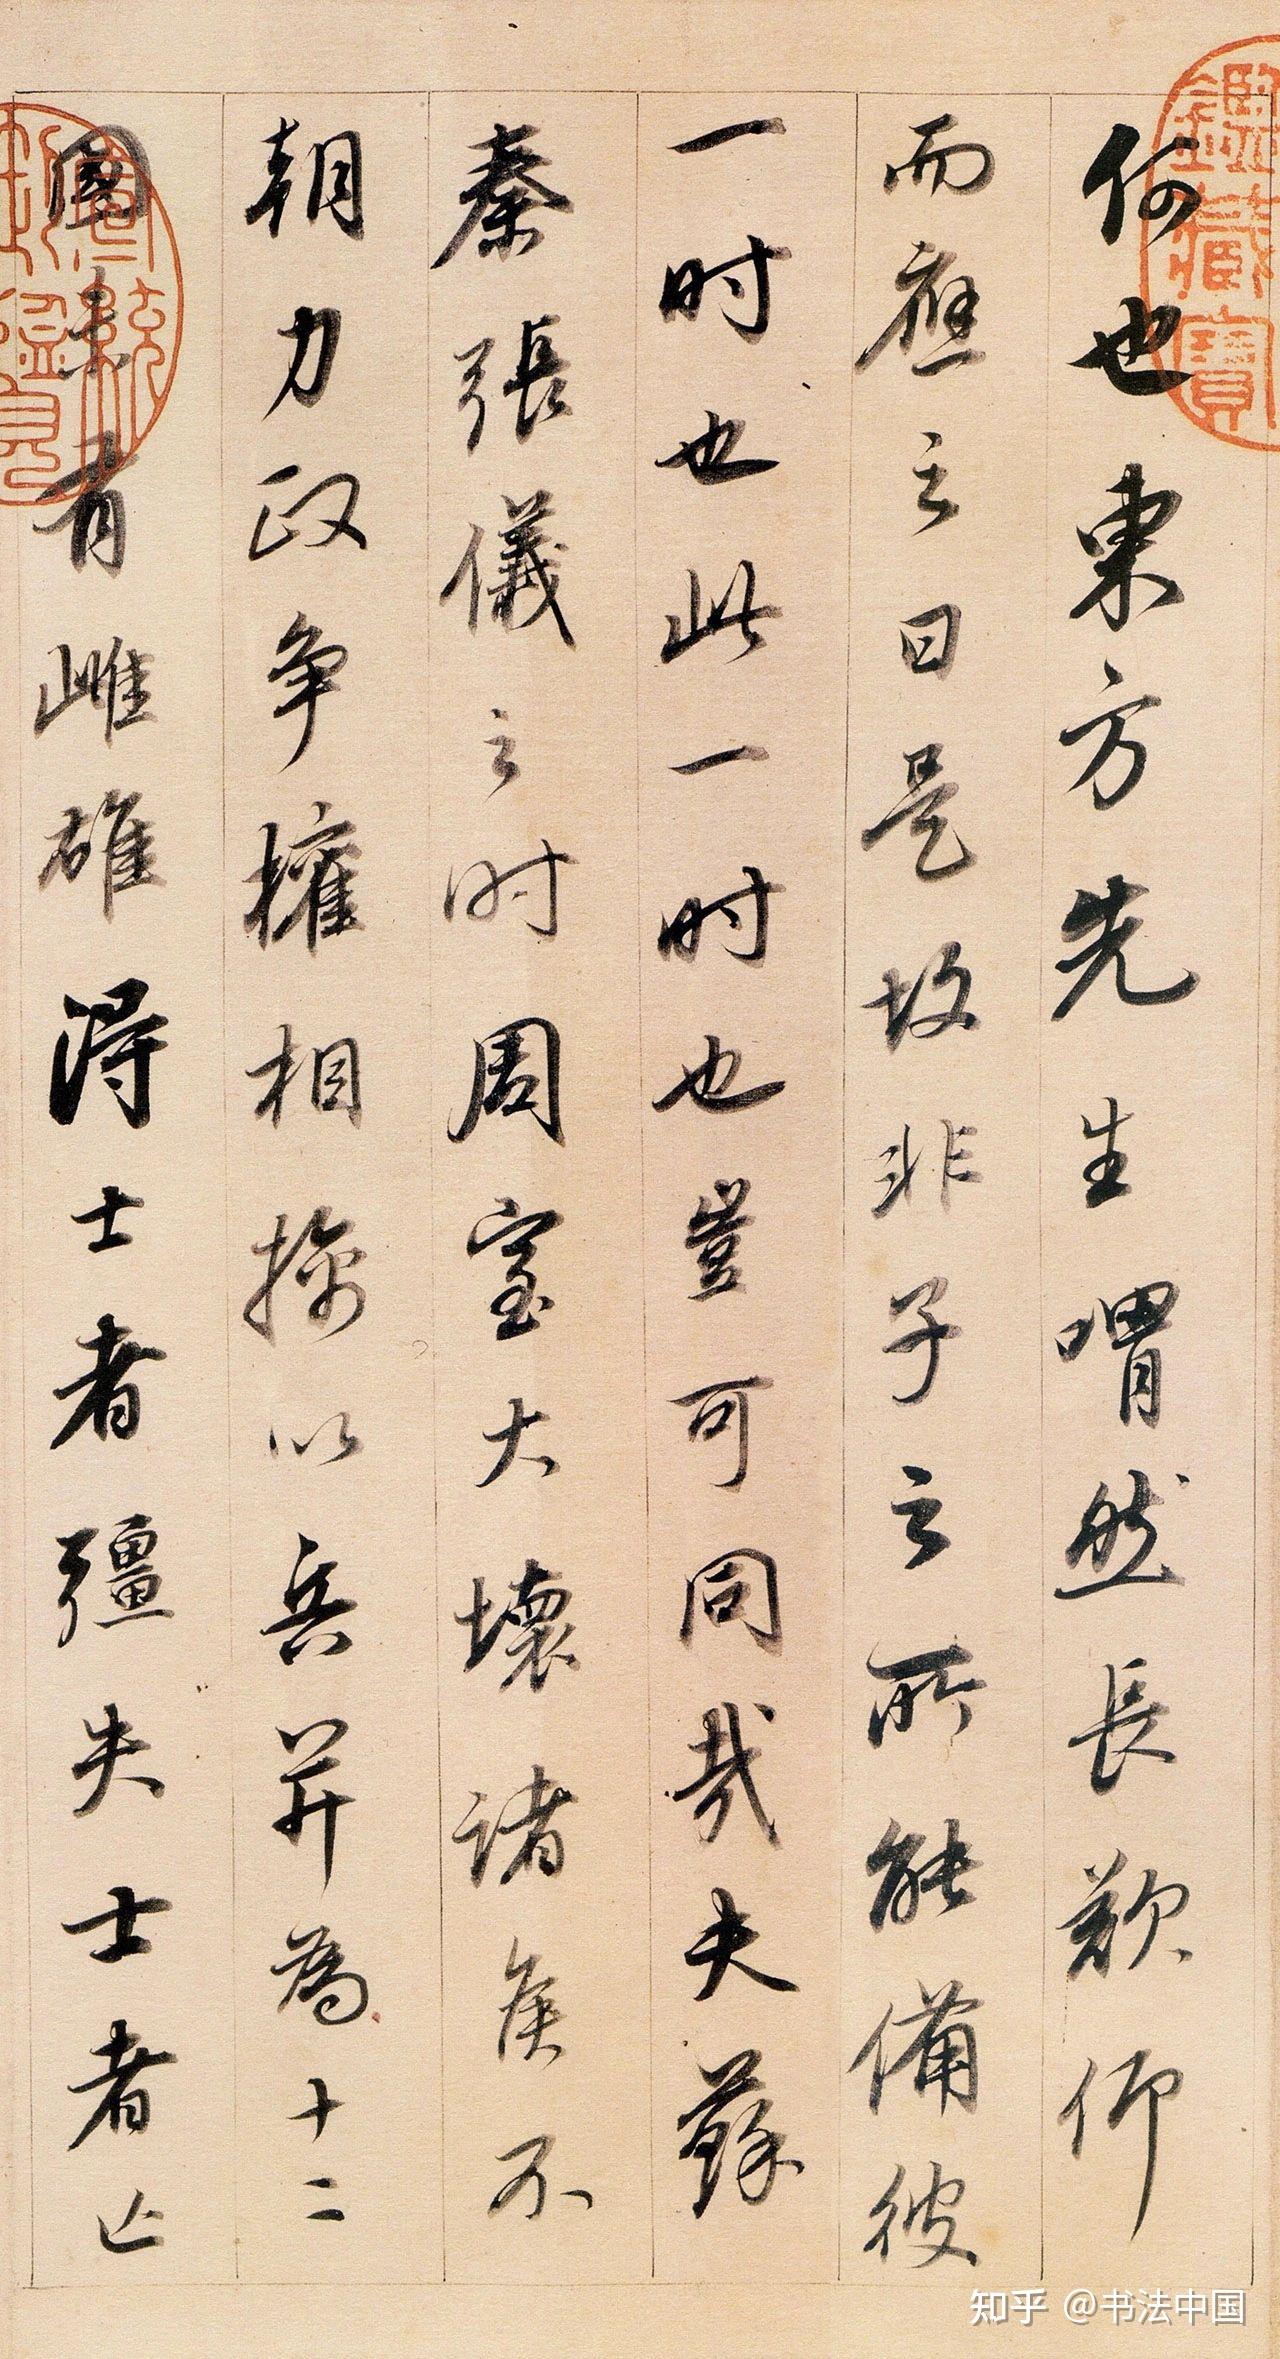 何也東方先生喟然長歎仰
而應之曰是故非子之所能備彼
一时也此一时也豈可同哉夫蘇
秦張儀之时周室大壞諸侯不
朝力政争權相擒以兵并為十二
國未有雌雄得士者彊失士者亡
鑑藏寶
宣統御覽
知乎 @书法中国